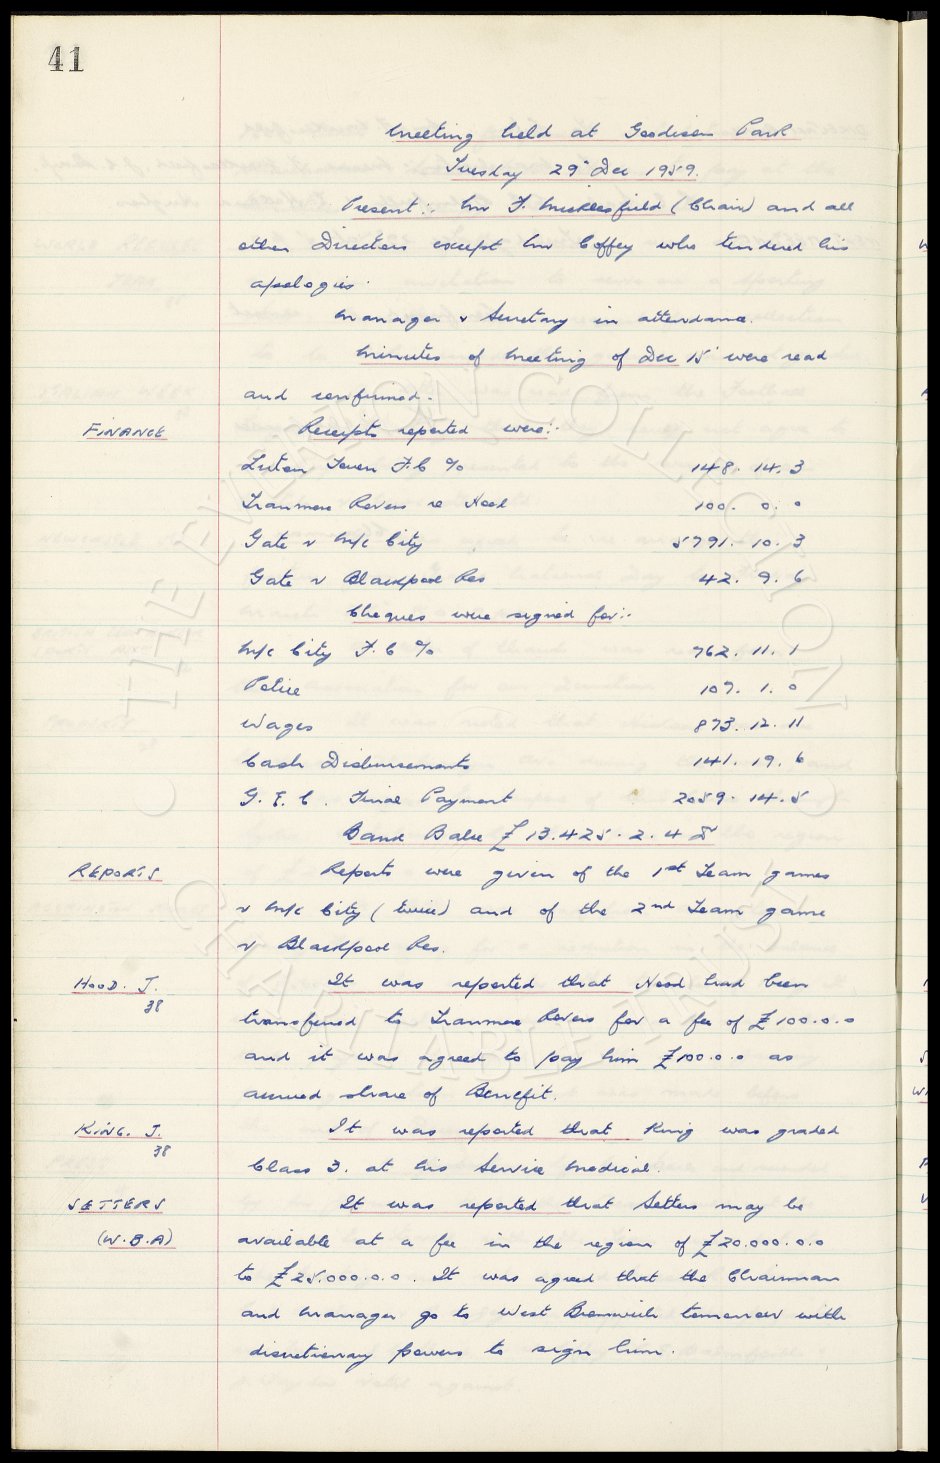 41
Meeting held at Goodison Park
Tuesday 29th Dec 1959.
Present:- Mr F. Micklesfield (Chair) and all
other Directors except Mr Coffey who tendered his
apologies.
Manager & Secretary in attendance.
Minutes of Meeting of Dec 15th were read
and confirmed.
FINANCE Receipts reported were:-
Luton Town F.C % 148. 14. 3
Tranmere Rovers re Hood 100. 0. 0
Gate v M/c City 5791. 10. 3
Gate v Blackpool Res 42. 9. 6
Cheques were signed for:-
M/c City F.C % 762. 11. 1
Police 107. 1. 0
Wages 873. 12. 11
Cash Disbursements 141. 19. 6
G.E.C. Final Payment 2059. 14. 5
Bank Balce £13.425. 2. 4
REPORTS Reports were given of the 1st Team games
v M/c City (twice) and of the 2nd Team game
v Blackpool Res.
HOOD. J. It was reported that Hood had been
38
transferred to Tranmere Rovers for a fee of £100.0.0
and it was agreed to pay him £100.0.0 as
accrued share of Benefit.
KING. J. It was reported that King was graded
38
Class 3. at his Service Medical.
SETTERS It was reported that Setters may be
(W.B.A) available at a fee in the region of £20.000.0.0
to £25.000.0.0. It was agreed that the Chairman
and Manager go to West Bromwich tomorrow with
discretionary powers to sign him.
THE EVERTON COLLECTION
CHARITABLE TRUST